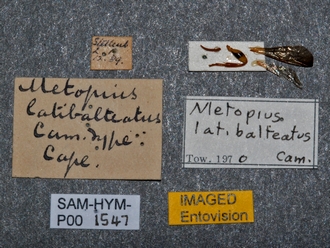 Metopius
latibalteatus
Cam. type
Cape.
Metopius
latibalteatus
Tow. 1970 Cam.
SAM-HYM-
P00 1547
IMAGED
Entovision